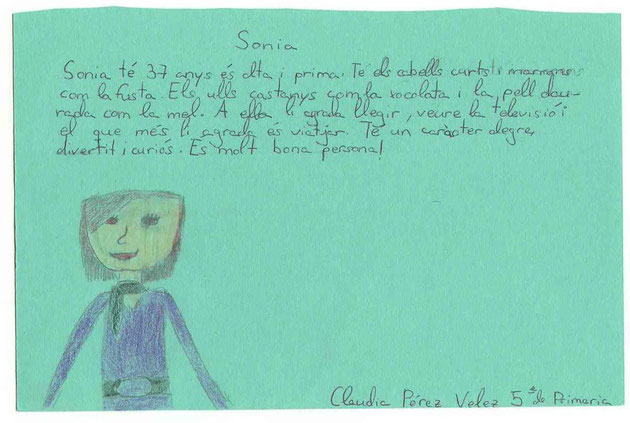 Sonia
Sonia té 37 anys és alta i prima. Té els cabells curts i marrons
com la fusta. Els ulls castanys com la xocolata i la pell dau-
rada com la mel. A ella li agrada llegir, veure la televisió i
el que més li agrada és viatjar. Té un caràcter alegre,
divertit i curiós. Es molt bona persona!
Claudia Pérez Velez 5º de Primaria